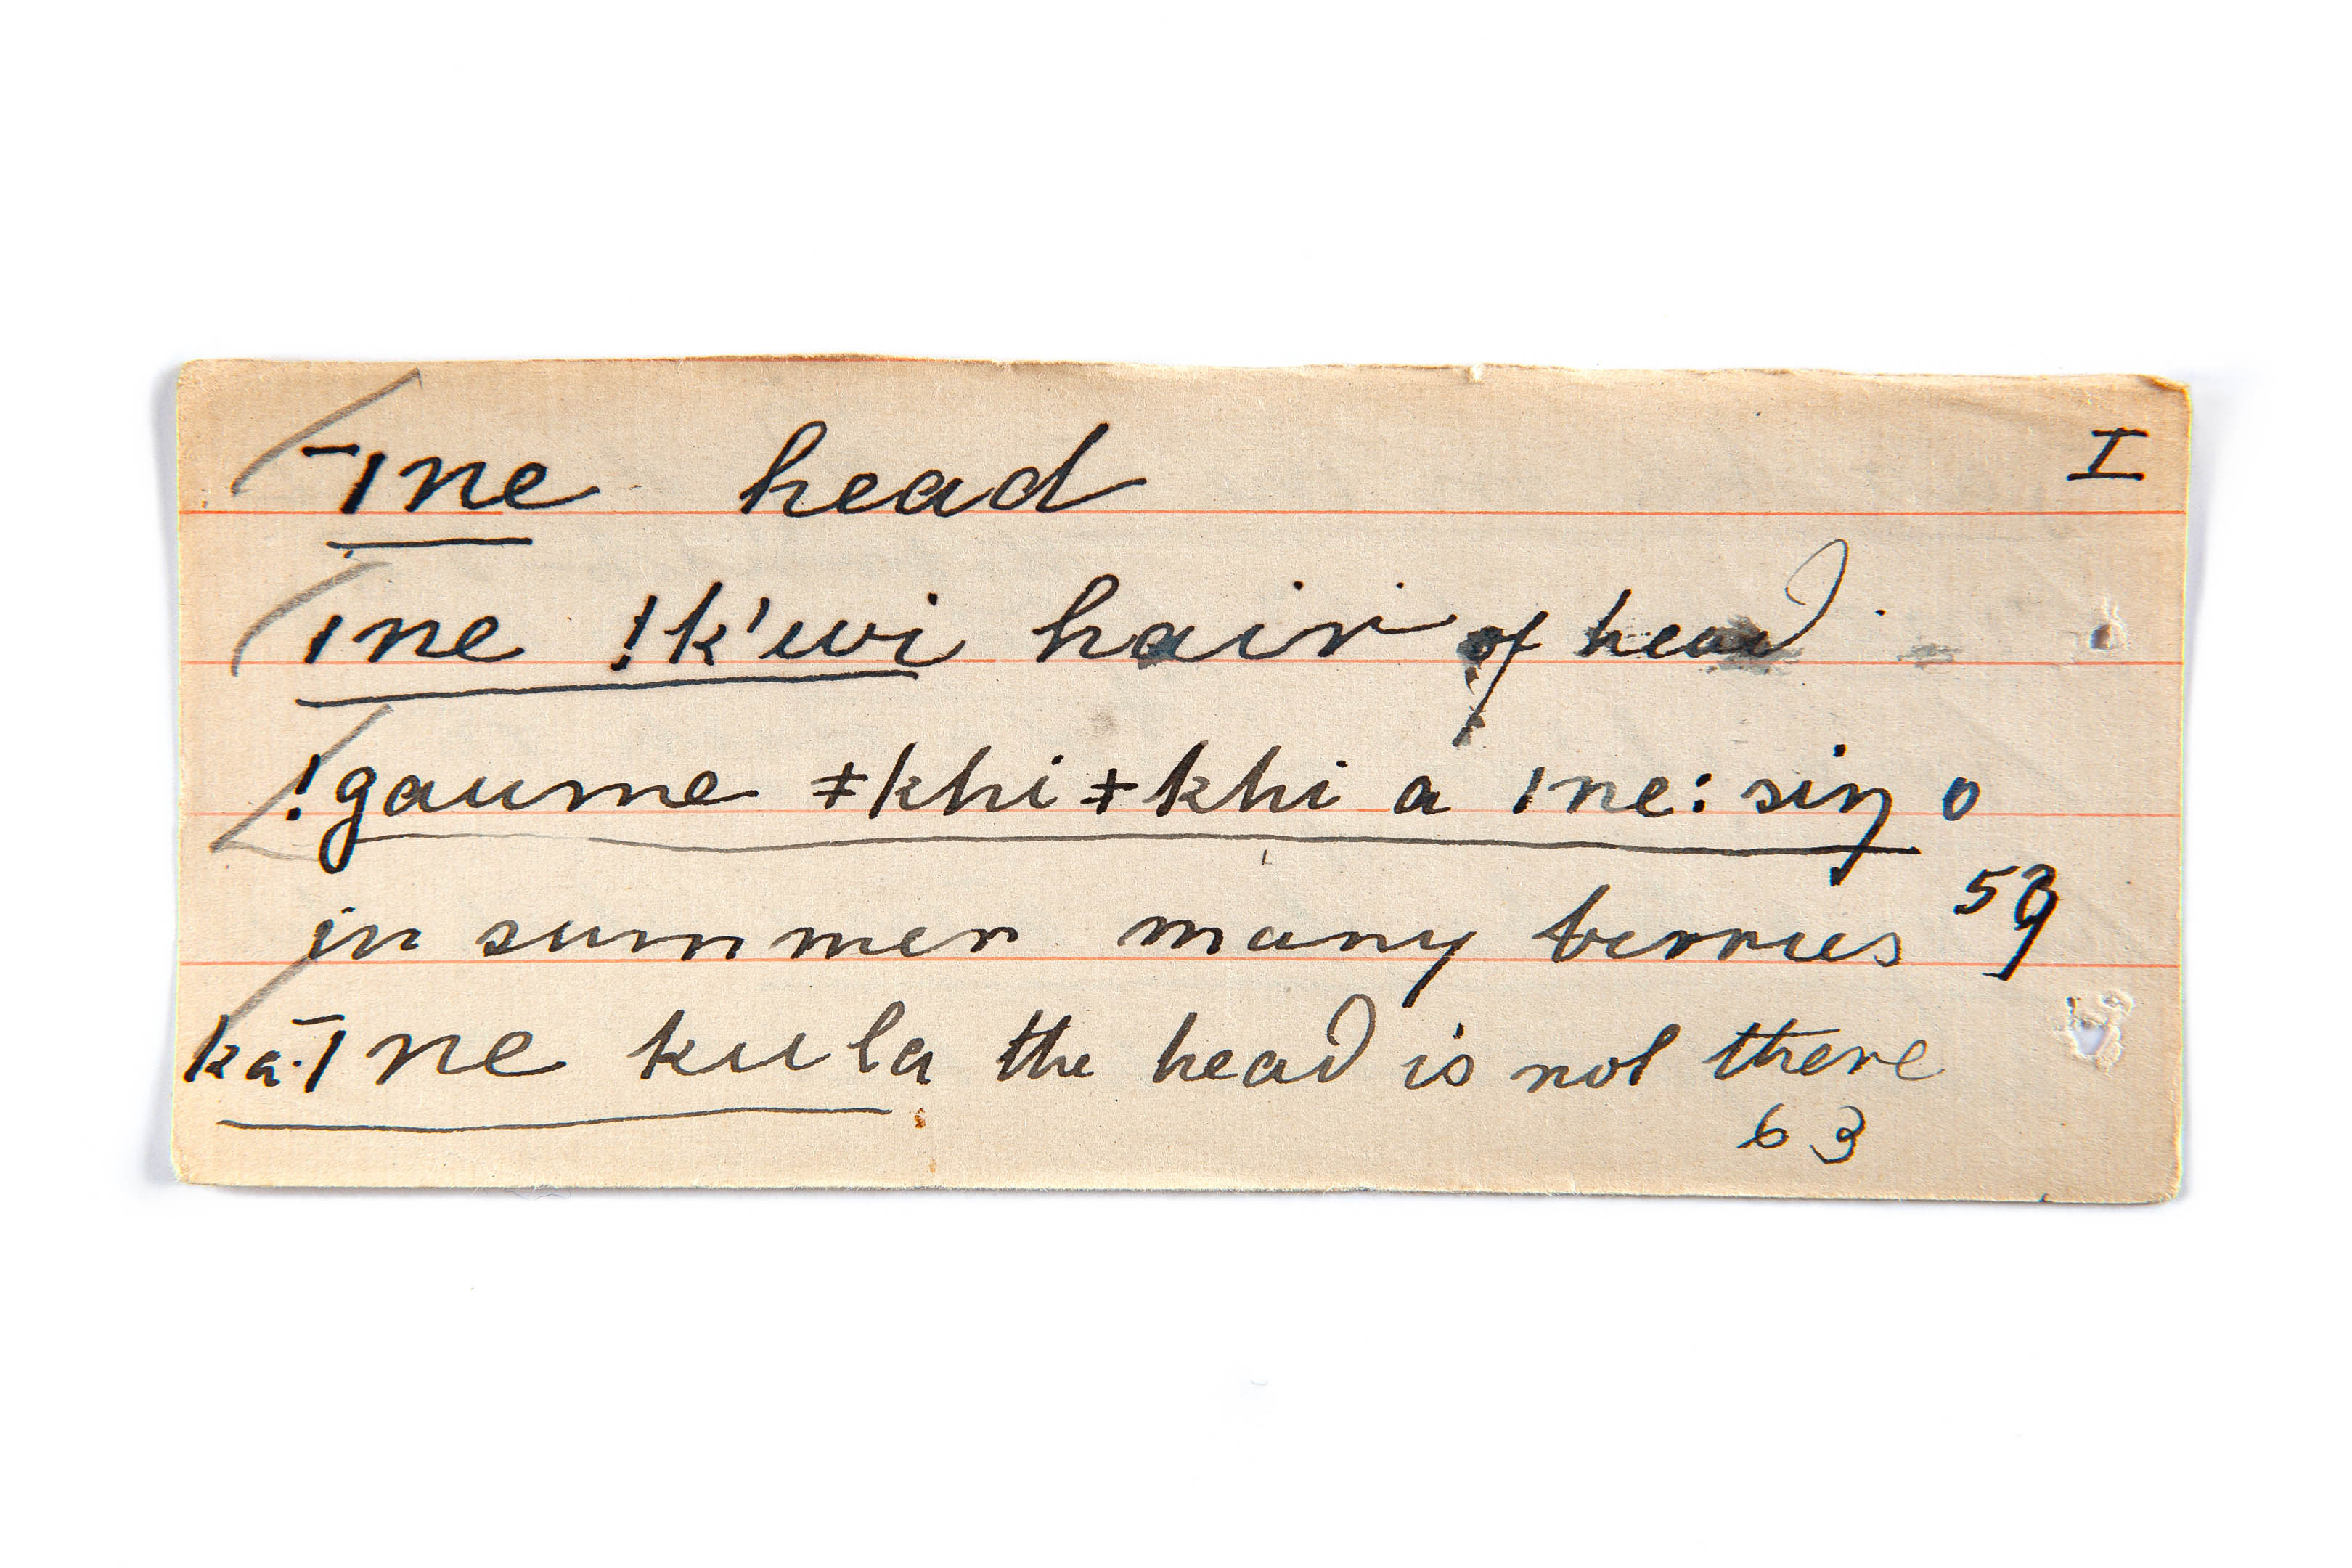 I
ˉǀne head
ǀne !k'wi hair of head.
!gaume ǂkhiǂkhi a ǀne: siŋ o
in summer many berries
kā·ǀne kula the head is not there
63